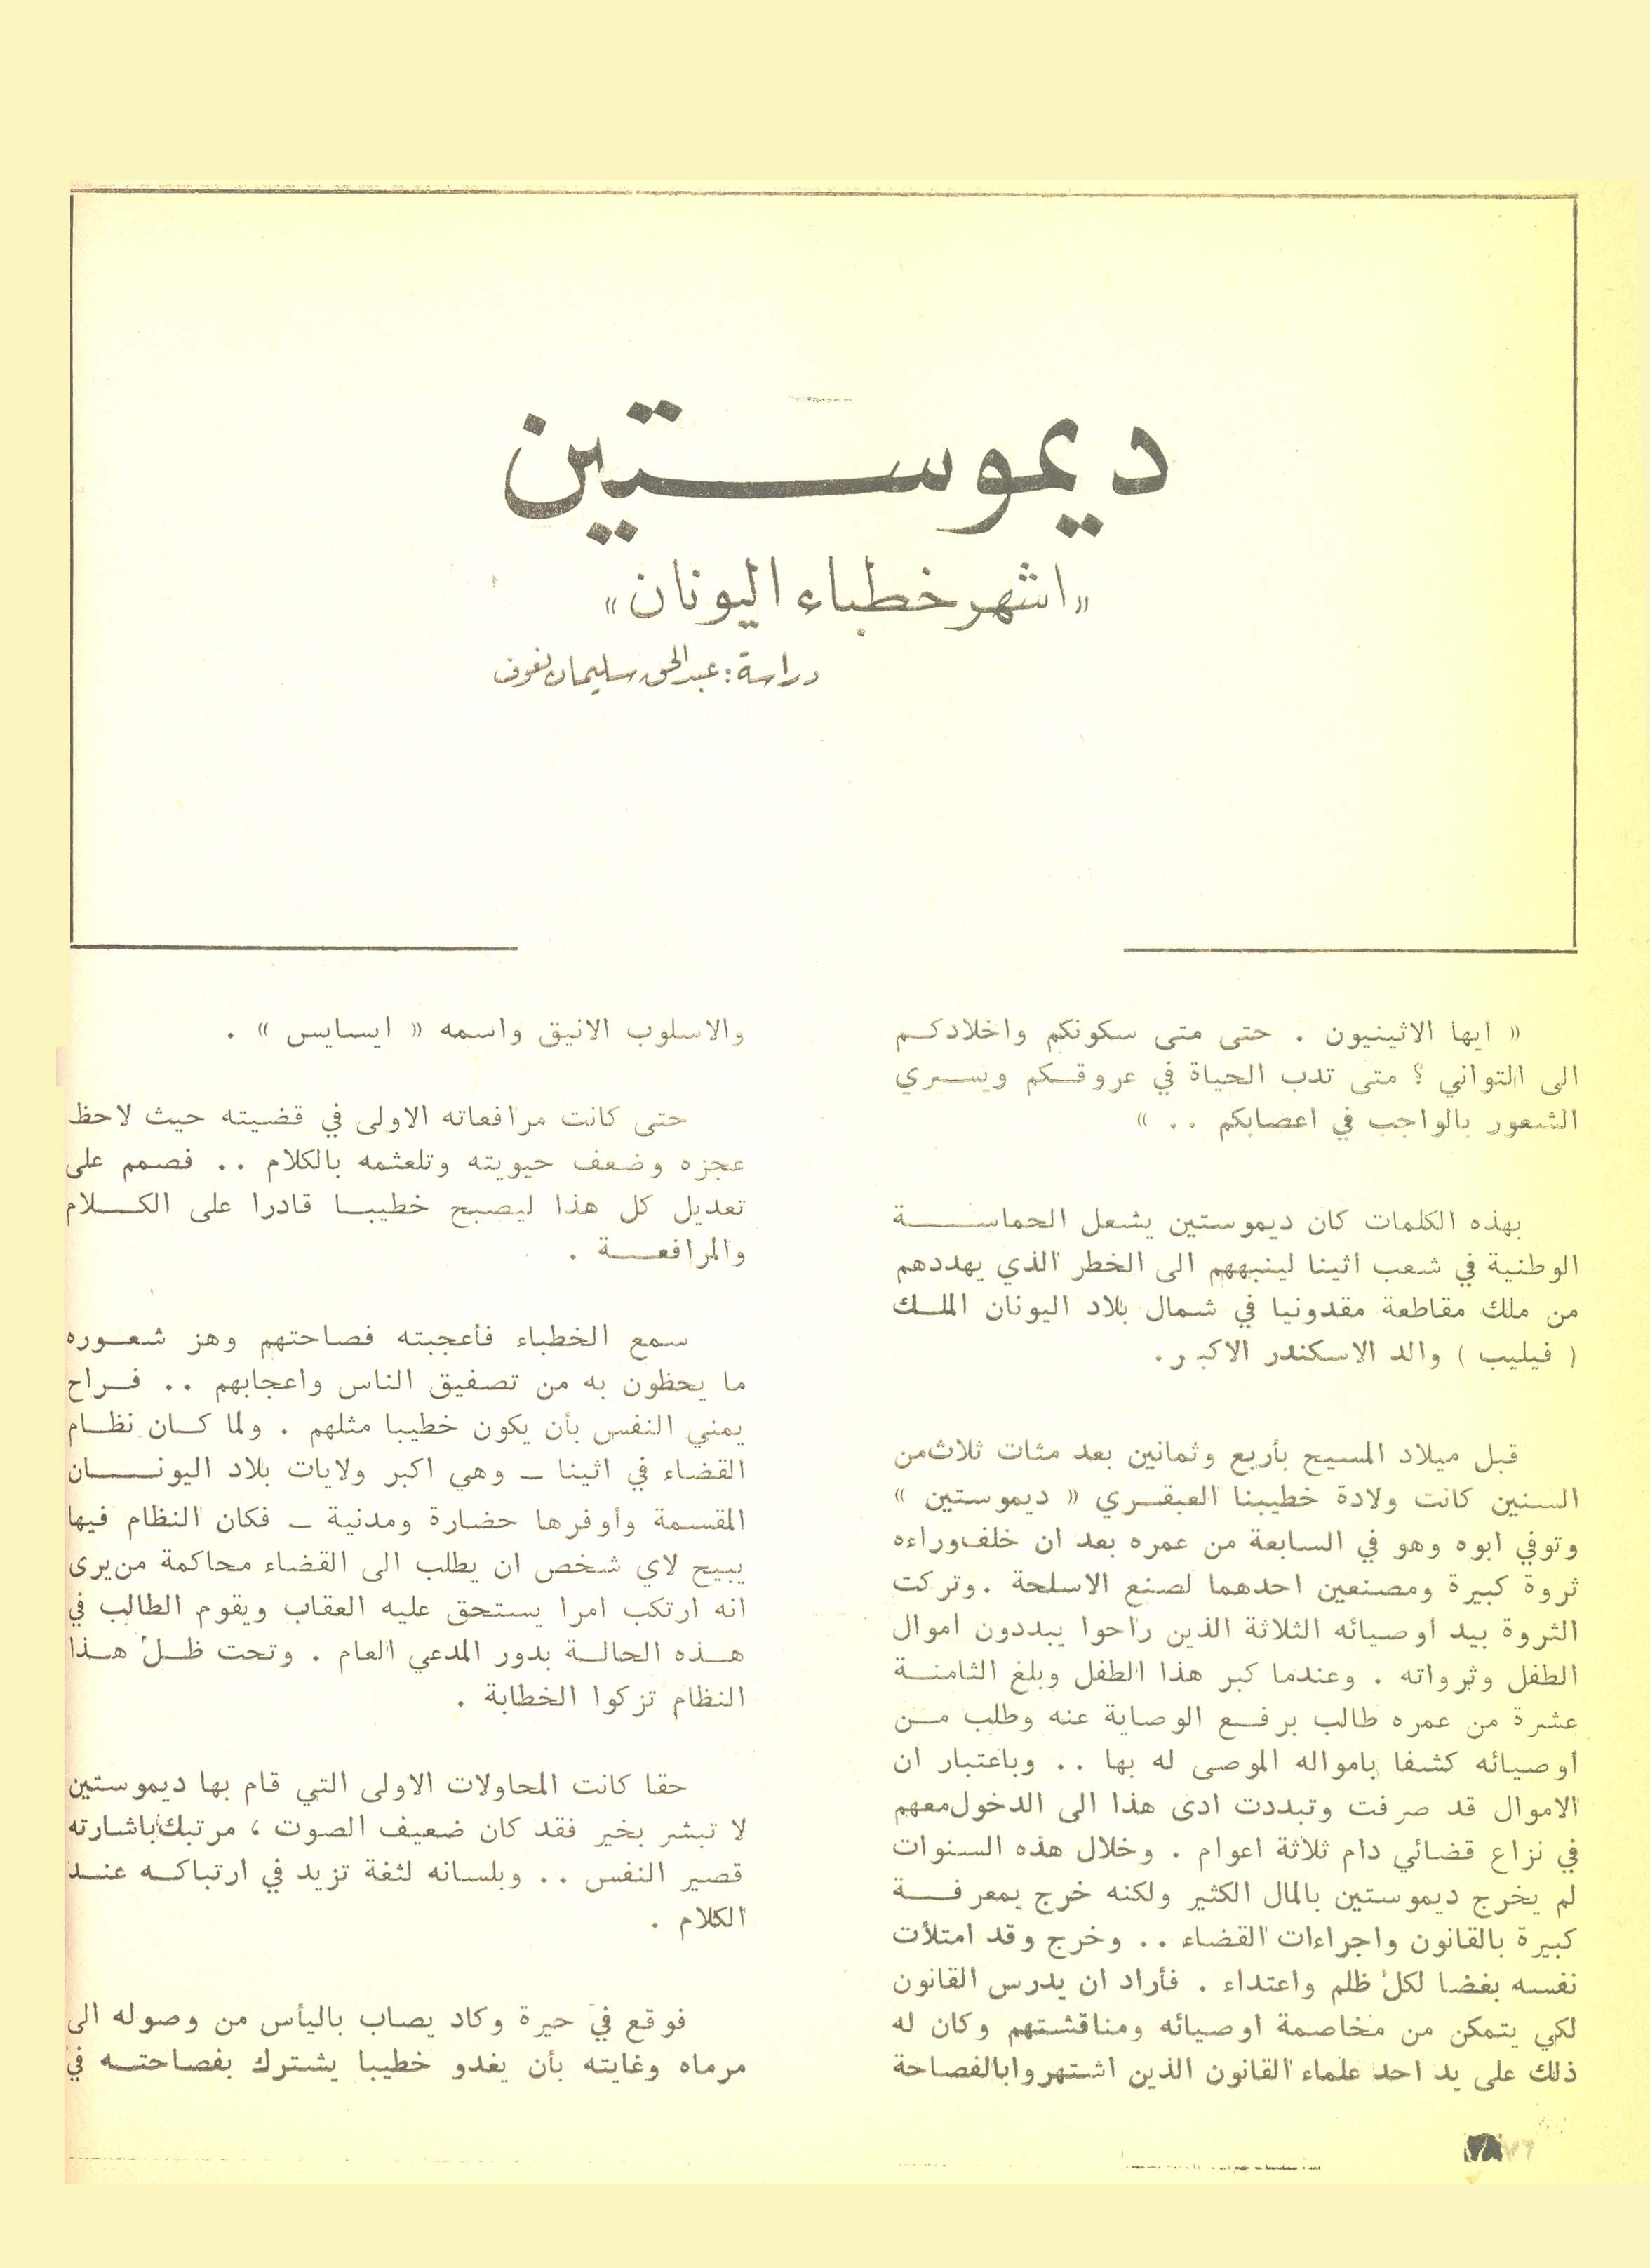 ديموستين
«اشهر خطباء اليونان»
دراسة : عبدالحق سليمان
« أيها الاثينيون . حتى متى سكونكم واخلادكم
الى التواني ؟ متى تدب الحياة في عروقكم ويسري
الشعور بالواجب في اعصابكم . . »
بهذه الكلمات كان ديموستين يشعل الحماسة
الوطنية في شعب اثينا لينبههم الى الخطر الذي يهددهم
من ملك مقاطعة مقدونيا في شمال بلاد اليونان الملك
( فيليب ) والد الاسكندر الاكبر .
قبل ميلاد المسيح بأربع وثمانين بعد مئات ثلاث من
السنين كانت ولادة خطيبنا العبقري « ديموستين »
وتوفي ابوه وهو في السابعة من عمره بعد ان خلف وراءه
ثروة كبيرة ومصنعين احدهما لصنع الاسلحة . وتركت
الثروة بيد اوصيائه الثلاثة الذين راحوا يبددون اموال
الطفل وثرواته . وعندما كبر هذا الطفل وبلغ الثامنة
عشرة من عمره طالب برفع الوصاية عنه وطلب من
اوصيائه كشفا بامواله الموصى له بها . . وباعتبار ان
الاموال قد صرفت وتبددت ادى هذا الى الدخول معهم
في نزاع قضائي دام ثلاثة اعوام . وخلال هذه السنوات
لم يخرج ديموستين بالمال الكثير ولكنه خرج بمعرفة
كبيرة بالقانون واجراءات القضاء . . وخرج وقد امتلأت
نفسه بغضا لكل ظلم واعتداء . فأراد ان يدرس القانون
لكي يتمكن من مخاصمة اوصيائه ومناقشتهم وكان له
ذلك على يد احد علماء القانون الذين اشتهروا بالفصاحة
والاسلوب الانيق واسمه « ايسايس » .
حتى كانت مرافعاته الاولى في قضيته حيث لاحظ
عجزه وضعف حيويته وتلعثمه بالكلام . . فصمم على
تعديل كل هذا ليصبح خطيبا قادرا على الكلام
والمرافعة .
سمع الخطباء فأعجبته فصاحتهم وهز شعوره
ما يحظون به من تصفيق الناس واعجابهم . . فراح
يمني النفس بأن يكون خطيبا مثلهم . ولما كان نظام
القضاء في اثينا ـ وهي اكبر ولايات بلاد اليونان
المقسمة وأوفرها حضارة ومدنية ـ فكان النظام فيها
يبيح لاي شخص ان يطلب الى القضاء محاكمة من يرى
انه ارتكب امرا يستحق عليه العقاب ويقوم الطالب في
هذه الحالة بدور المدعي العام . وتحت ظل هذا
النظام تزكوا الخطابة .
حقا كانت المحاولات الاولى التي قام بها ديموستين
لا تبشر بخير فقد كان ضعيف الصوت ، مرتبك باشارته
قصير النفس . . وبلسانه لثغة تزيد في ارتباكه عند
الكلام .
فوقع في حيرة وكاد يصاب باليأس من وصوله الى
مرماه وغايته بأن يغدو خطيبا يشترك بفصاحته في